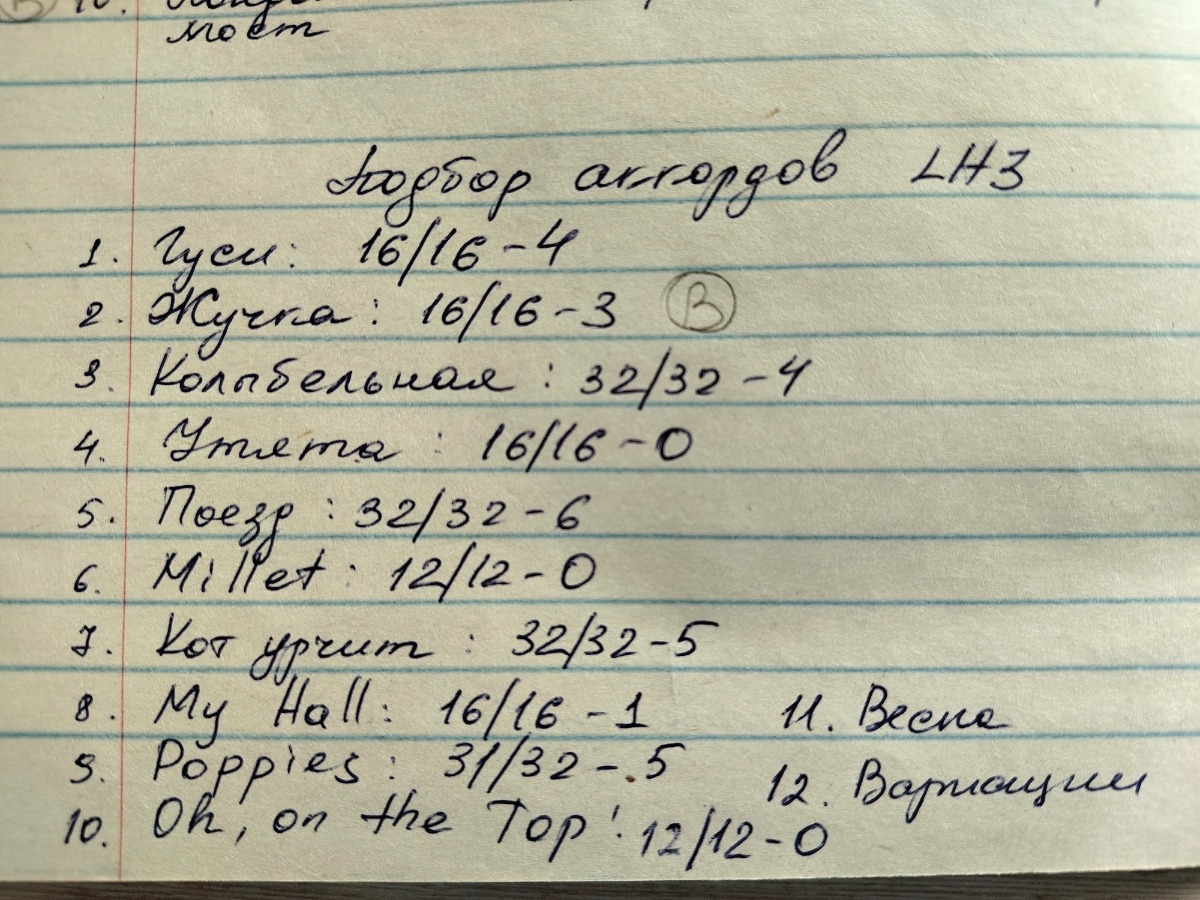 10.
мост
Подбор аккордов LH3
1. Гуси: 16/16-4
2. Жучка: 16/16-3 В
3. Колыбельная: 32/32-4
4. Утята: 16/16-0
5. Поезд: 32/32-6
6. Millet: 12/12-0
7. Кот урчит: 32/32-5
8. My Hall: 16/16-1 11. Весна
9. Poppies: 31/32-5 12. Вариации
10. Oh, on the Top: 12/12-0